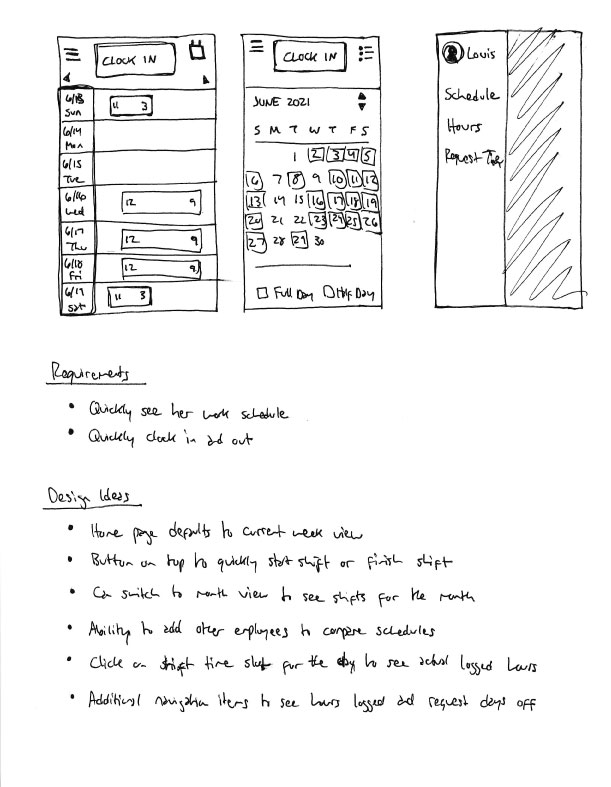 CLOCK IN
6/13
Sun
11 3
6/14
Mon
6/15
Tue
6/16
Wed
12 9
6/17
Thu
12 9
6/18
Fri
12 9
6/19
Sat
11 3
CLOCK IN
JUNE 2021
S M T W T F S
1 2 3 4 5
6 7 8 9 10 11 12
13 14 15 16 17 18 19
20 21 22 23 24 25 26
27 28 29 30
Full Day Half Day
Louis
Schedule
Hours
Request Time
Requirements
• Quickly see her work schedule
• Quickly clock in and out
Design Ideas
• Home page defaults to current week view
• Button on top to quickly start shift or finish shift
• Can switch to month view to see shifts for the month
• Ability to add other employees to compare schedules
• Click on shift time slot for the day to see actual logged hours
• Additional navigation items to see hours logged and request days off